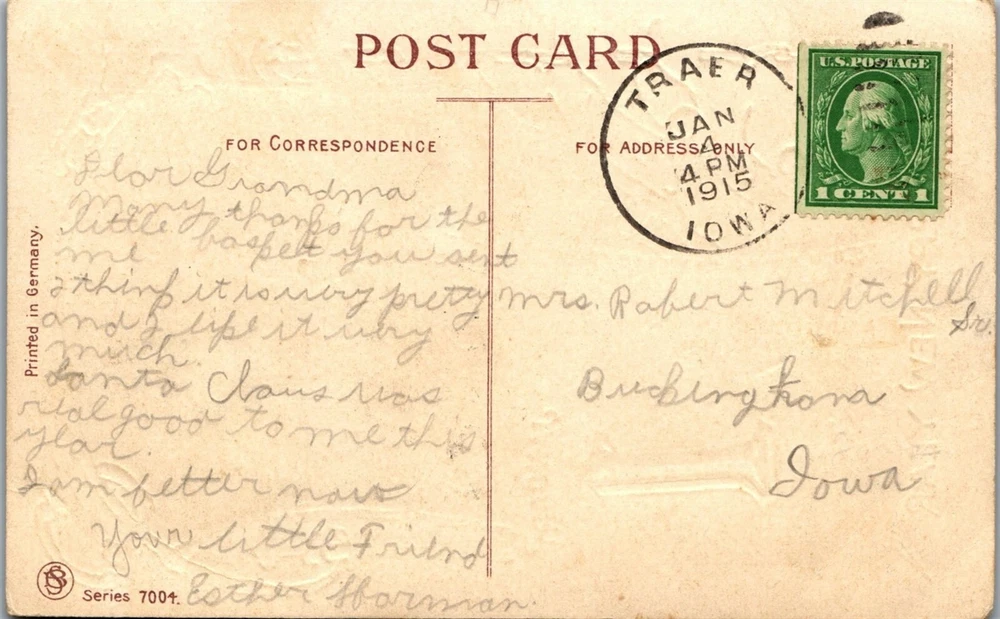 POST CARD
FOR CORRESPONDENCE
FOR ADDRESS ONLY
TRAER
JAN
4
4 PM
1915
IOWA
U.S. POSTAGE
1 CENT 1
Dear Grandma
Many thanks for the
little basket you sent
me
I think it is very pretty
and I like it very
much.
Santa Claus was
real good to me this
year.
I am better now
Your little Friend
Esther Harman.
Mrs. Robert Mitchell
Sr.
Buckingham
Iowa
Printed in Germany.
Series 7004.